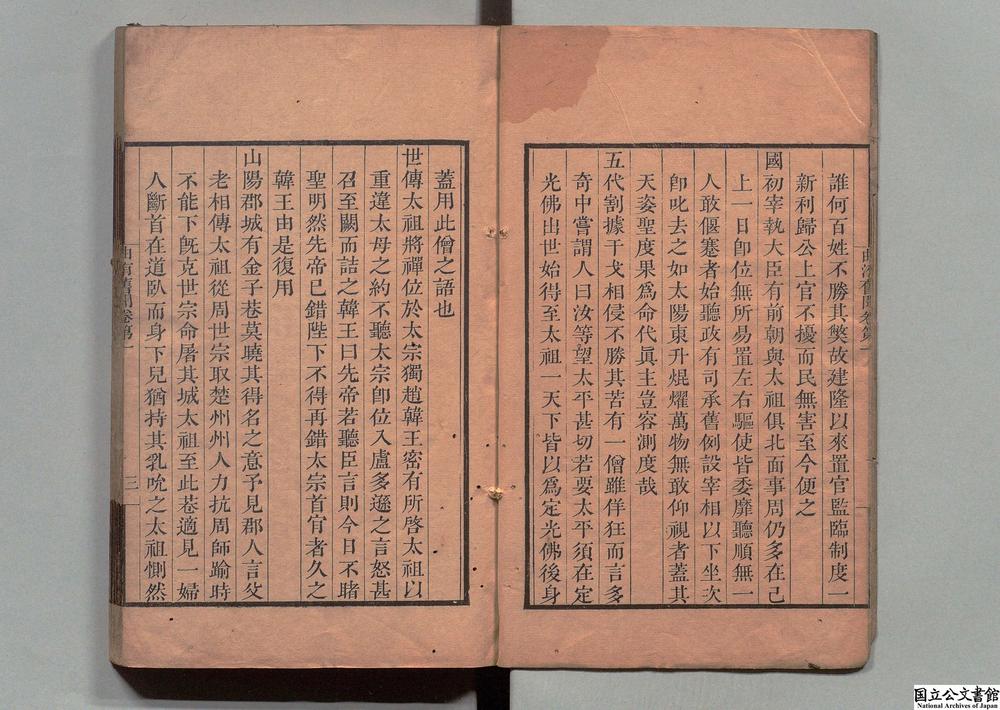 誰何百姓不勝其獘故建隆以來置官監臨制度一
新利歸公上官不擾而民無害至今便之
國初宰執大臣有前朝與太祖俱北面事周仍多在己
上一日卽位無所易置左右驅使皆委靡聽順無一
人敢偃蹇者始聽政有司承舊例設宰相以下坐次
卽叱去之如太陽東升焜燿萬物無敢仰視者蓋其
天姿聖度果爲命代眞主豈容測度哉
五代割據干戈相侵不勝其苦有一僧雖佯狂而言多
奇中嘗謂人曰汝等望太平甚切若要太平須在定
光佛出世始得至太祖一天下皆以爲定光佛後身
蓋用此僧之語也
世傳太祖將禪位於太宗獨趙韓王密有所啓太祖以
重違太母之約不聽太宗卽位入盧多遜之言怒甚
召至闕而詰之韓王曰先帝若聽臣言則今日不睹
聖明然先帝已錯陛下不得再錯太宗首肯者久之
韓王由是復用
山陽郡城有金子巷莫曉其得名之意予見郡人言父
老相傳太祖從周世宗取楚州州人力抗周師踰時
不能下旣克世宗命屠其城太祖至此巷適見一婦
人斷首在道臥而身下兒猶持其乳吮之太祖惻然
曲洧舊聞卷第一
三
国立公文書館
National Archives of Japan